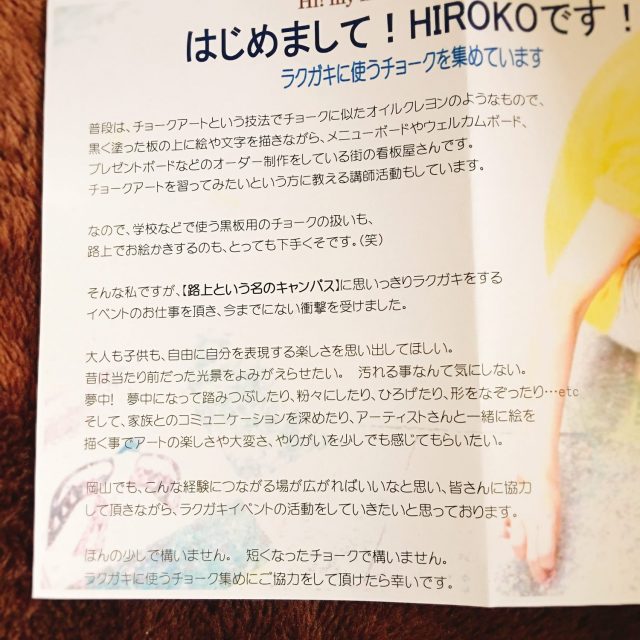 Hi! my
はじめまして！HIROKOです！
ラクガキに使うチョークを集めています
普段は、チョークアートという技法でチョークに似たオイルクレヨンのようなもので、
黒く塗った板の上に絵や文字を描きながら、メニューボードやウェルカムボード、
プレゼントボードなどのオーダー制作をしている街の看板屋さんです。
チョークアートを習ってみたいという方に教える講師活動もしています。
なので、学校などで使う黒板用のチョークの扱いも、
路上でお絵かきするのも、とっても下手くそです。（笑）
そんな私ですが、【路上という名のキャンバス】に思いっきりラクガキをする
イベントのお仕事を頂き、今までにない衝撃を受けました。
大人も子供も、自由に自分を表現する楽しさを思い出してほしい。
昔は当たり前だった光景をよみがえらせたい。 汚れる事なんて気にしない。
夢中！ 夢中になって踏みつぶしたり、粉々にしたり、ひろげたり、形をなぞったり…etc
そして、家族とのコミュニケーションを深めたり、アーティストさんと一緒に絵を
描く事でアートの楽しさや大変さ、やりがいを少しでも感じてもらいたい。
岡山でも、こんな経験につながる場が広がればいいなと思い、皆さんに協力
して頂きながら、ラクガキイベントの活動をしていきたいと思っております。
ほんの少しで構いません。 短くなったチョークで構いません。
ラクガキに使うチョーク集めにご協力をして頂けたら幸いです。